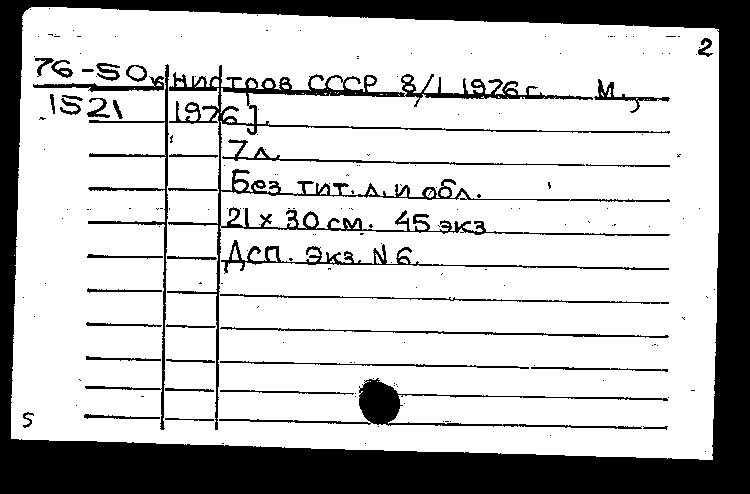 2
76-50к нистров СССР 8/I 1976 г. М.,
1521 1976].
7 л.
Без тит. л. и обл.
21 × 30 см. 45 экз
Дсп. Экз. N 6.
5